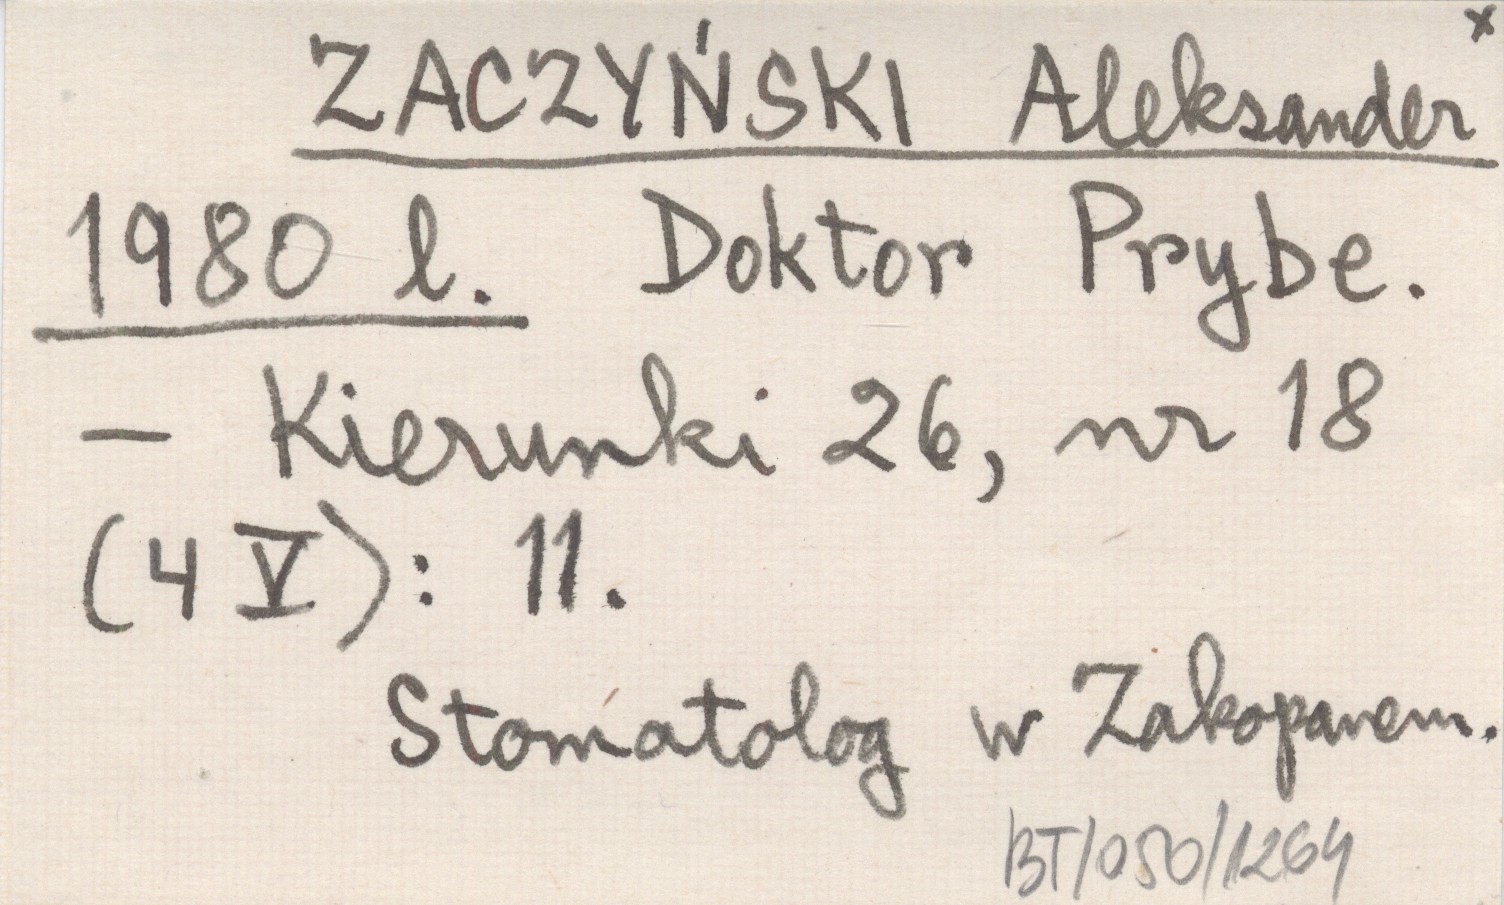 x
ZACZYŃSKI Aleksander
1980 l. Doktor Prybe.
— Kierunki 26, nr 18
(4 V): 11.
Stomatolog w Zakopanem.
BT/050/1264